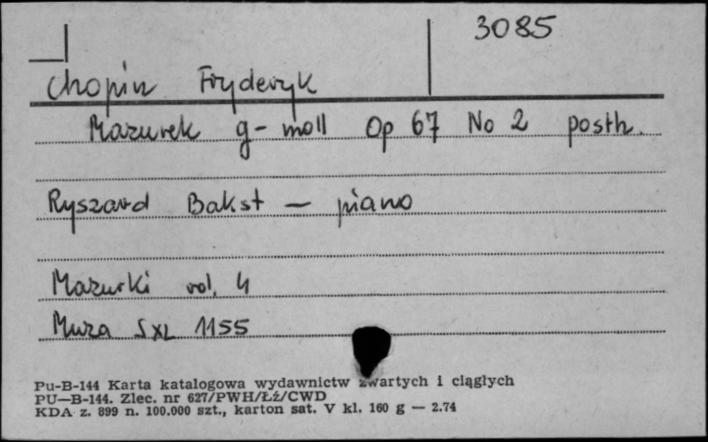 3085
Chopin Fryderyk
Mazurek g-moll Op 67 No 2 posth.
Ryszard Bakst — piano
Mazurki vol. 4
Muza SXL 1155
Pu-B-144 Karta katalogowa wydawnictw zwartych i ciągłych
PU—B-144. Zlec. nr 627/PWH/Łź/CWD
KDA z. 899 n. 100.000 szt., karton sat. V kl. 160 g — 2.74